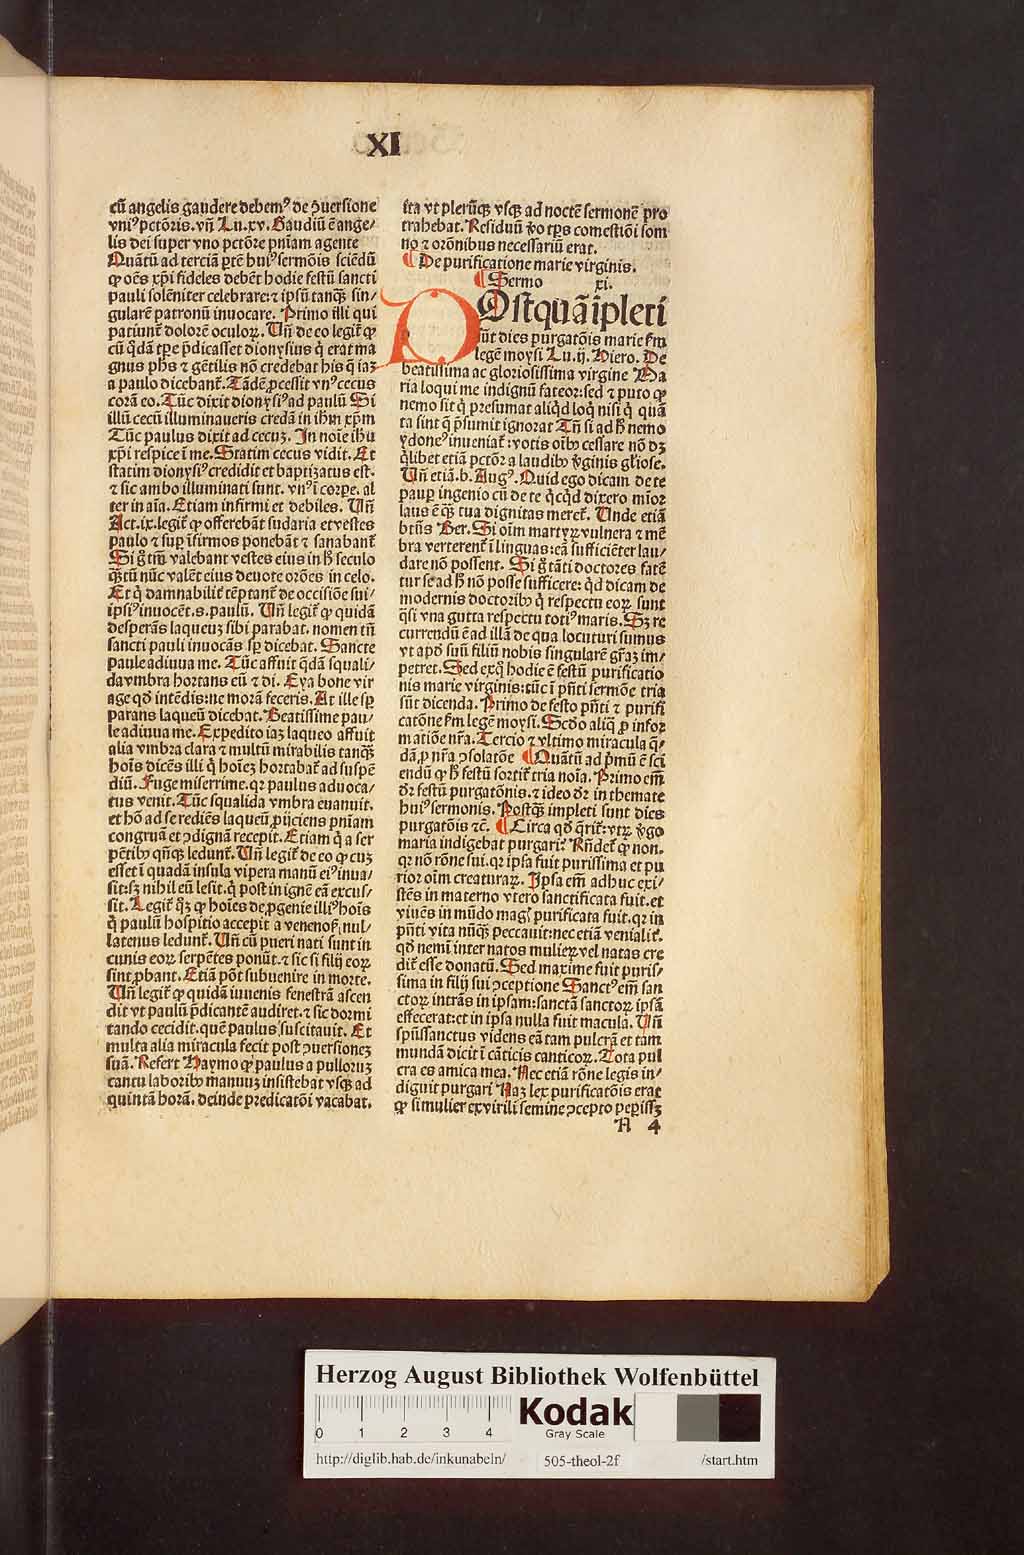 XI
cū angelis gaudere debemꝰ de ꝯuersione
vniꝰ pctōris. vñ Lu. xv. Gaudiū ē ange/
lis dei super vno pctōre pniam agente
Quātū ad terciā ptē huiꝰ sermōis sciēdū
ꝙ oēs xp̄i fideles debēt hodie festū sancti
pauli solēniter celebrare: ⁊ ipsū tanqꝫ sin/
gularē patronū inuocare. Primo illi qui
patiunt̄ dolorē oculoꝝ. Uñ de eo legit̄ ꝙ
cū q̄dā tp̄e p̄dicasset dionysius q̄ erat ma
gnus ph̄s ⁊ gētilis nō credebat his q̄ iaꝫ
a paulo dicebant̄. Tādē ꝓcessit vnꝰ cecus
corā eo. Tūc dixit dionysiꝰ ad paulū Si
illū cecū illuminaueris credā in ihm̄ xp̄m
Tūc paulus dixit ad cecuꝫ. In noīe ihu
xp̄i respice ī me. Statim cecus vidit. Et
statim dionysiꝰ credidit et baptizatus est.
⁊ sic ambo illuminati sunt. vnꝰ ī corpe. al
ter in aīa. Etiam infirmi et debiles. Uñ
Act. ix. legit̄ ꝙ offerebāt sudaria et vestes
paulo ⁊ suꝑ īfirmos ponebāt ⁊ sanabant̄
Si g̊ tm̄ valebant vestes eius in h̄ seculo
qꝫtū nūc valēt eius deuote orōes in celo.
Et q̄ damnabilit̄ tēptant̄ de occisiōe sui/
ipsiꝰ inuocēt. s. paulū. Uñ legit̄ ꝙ quidā
desperās laqueuꝫ sibi parabat. nomen tñ
sancti pauli inuocās sꝑ dicebat. Sancte
paule adiuua me. Tūc affuit q̄dā squali/
da vmbra hortans eū ⁊ di. Eya bone vir
age qd̄ intēdis: ne morā feceris. At ille sꝑ
parans laqueū dicebat. Beatissime pau/
le adiuua me. Expedito iaꝫ laqueo affuit
alia vmbra clara ⁊ multū mirabilis tanqꝫ
hoīs dicēs illi q̄ hoīeꝫ hortabat̄ ad suspē
diū. Fuge miserrime. qꝛ paulus aduoca/
tus venit. Tūc squalida vmbra euanuit.
et hō ad se rediēs laqueū ꝓijciens pniam
congruā et ꝯdignā recepit. Etiam q̄ a ser
pētibꝰ qñqꝫ ledunt̄. Uñ legit̄ de eo ꝙ cuꝫ
esset ī quadā insula vipera manū eiꝰ inua/
sit. sꝫ nihil eū lesit. q̄ post in ignē eā excus/
sit. Legit̄ q̄ꝫ ꝙ hoīes de ꝓgenie illiꝰ hoīs
q̄ paulū hospitio accepit a venenosꝭ nul/
latenus ledunt̄. Uñ cū pueri nati sunt in
cunis eoꝝ serpētes ponūt. ⁊ sic si filij eoꝝ
sint ꝓbant. Etiā pōt subuenire in morte.
Uñ legit̄ ꝙ quidā iuuenis fenestrā ascen
dit vt paulū p̄dicantē audiret. ⁊ sic dormi
tando cecidit. quē paulus suscitauit. Et
multa alia miracula fecit post ꝯuersioneꝫ
suā. Refert Haymo ꝙ paulus a pulloruꝫ
cantu laboribꝰ manuuꝫ insistebat vsqꝫ ad
quintā horā. deinde predicatōi vacabat.
ita vt plerūqꝫ vsqꝫ ad noctē sermonē pro
trahebat. Residuū v̄o tp̄s comestiōi som
no ⁊ orōnibus necessariū erat.
¶ De purificatione marie virginis.
¶ Sermo xi.
POstquā īpleti
sūt dies purgatōis marie fm
legē moysi Lu. ij. Hiero. De
beatissima ac gloriosissima virgine Ma
ria loqui me indignū fateor: sed ⁊ puto ꝙ
nemo sit q̄ presumat aliqd loq̄ nisi q̄ quā
ta sint q̄ p̄sumit ignorat Tñ si ad h̄ nemo
ydoneꝰ inueniat̄: votis oībꝰ cessare nō dꝫ
q̄libet etiā pctōr a laudibꝰ v̄ginis gl̄iose.
Uñ etiā. b. Augꝰ. Quid ego dicam de te
pauꝑ ingenio cū de te q̄cqd dixero mīor
laus ē qꝫ tua dignitas meret̄. Unde etiā
btūs Ber. Si oīm martyꝝ vulnera ⁊ mē
bra verterent̄ ī linguas: eā sufficiēter lau/
dare nō possent. Si g̊ tāti doctores fatē
tur se ad h̄ nō posse sufficere: qd dicam de
modernis doctoribꝰ q̄ respectu eoꝝ sunt
q̄si vna gutta respectu totiꝰ maris. Sꝫ re
currendū ē ad illā de qua locuturi sumus
vt apd̄ suū filiū nobis singularē gr̄aꝫ im/
petret. Sed exq̄ hodie ē festū purificatio
nis marie virginis: tūc ī pn̄ti sermōe tria
sūt dicenda. Primo de festo pn̄ti ⁊ purifi
catōne fm legē moysi. Scd̄o aliq̄ ꝓ infor
matiōe nr̄a. Tercio ⁊ vltimo miracula q̄/
dā ꝓ nr̄a ꝯsolatōe ¶ Quātū ad pͥmū ē sci
endū ꝙ h̄ festū sortit̄ tria noīa. Primo em̄
dr̄ festū purgatōnis. ⁊ ideo dr̄ in themate
huiꝰ sermonis. Postqꝫ impleti sunt dies
purgatōis ⁊c̄. ¶ Circa qd̄ q̄rit̄: vtꝝ v̄go
maria indigebat purgari? Rñdet̄ ꝙ non.
qꝛ nō rōne sui. qꝛ ipsa fuit purissima et pu
rioꝛ oīm creaturaꝝ. Ipsa em̄ adhuc exi/
stēs in materno vtero sanctificata fuit. et
viuēs in mūdo magꝭ purificata fuit. qꝛ in
pn̄ti vita nūqꝫ peccauit: nec etiā venialit̄.
qd̄ nemī inter natos mulieꝝ vel natas cre
dit̄ esse donatū. Sed maxime fuit puris/
sima in filij sui ꝯceptione Sanctꝰ em̄ san
ctoꝝ intrās in ipsam: sanctā sanctoꝝ ipsā
effecerat: et in ipsa nulla fuit macula. Uñ
spūssanctus videns eā tam pulcrā et tam
mundā dicit ī cāticis canticoꝝ. Tota pul
cra es amica mea. Nec etiā rōne legis in/
diguit purgari Naꝫ lex purificatōis erat
ꝙ si mulier ex virili semine ꝯcepto peperissꝫ
A 4
Herzog August Bibliothek Wolfenbüttel
0 1 2 3 4
Kodak
Gray Scale
http://diglib.hab.de/inkunabeln/ 505-theol-2f /start.htm